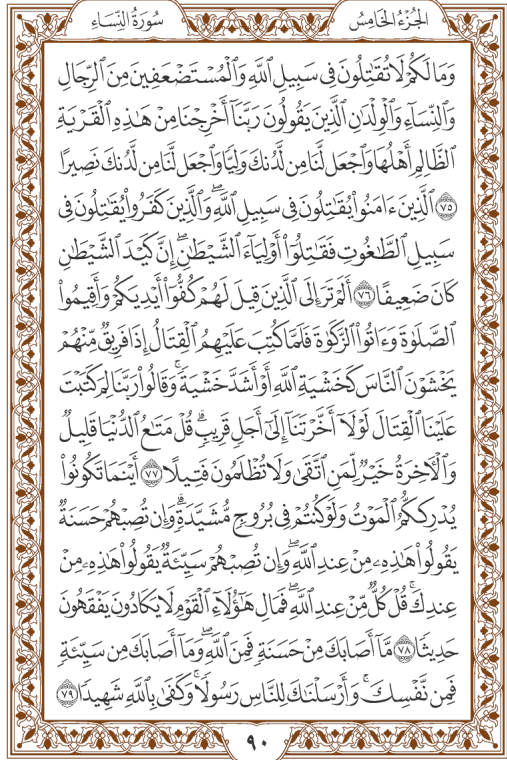 الجُزْءُ الخَامِسُ
سُورَةُ النِّسَاءِ
وَمَا لَكُمْ لَا تُقَٰتِلُونَ فِي سَبِيلِ ٱللَّهِ وَٱلْمُسْتَضْعَفِينَ مِنَ ٱلرِّجَالِ
وَٱلنِّسَآءِ وَٱلْوِلْدَٰنِ ٱلَّذِينَ يَقُولُونَ رَبَّنَآ أَخْرِجْنَا مِنْ هَٰذِهِ ٱلْقَرْيَةِ
ٱلظَّالِمِ أَهْلُهَا وَٱجْعَل لَّنَا مِن لَّدُنكَ وَلِيًّا وَٱجْعَل لَّنَا مِن لَّدُنكَ نَصِيرًا
۝٧٥ ٱلَّذِينَ ءَامَنُوا۟ يُقَٰتِلُونَ فِي سَبِيلِ ٱللَّهِ ۖ وَٱلَّذِينَ كَفَرُوا۟ يُقَٰتِلُونَ فِي
سَبِيلِ ٱلطَّٰغُوتِ فَقَٰتِلُوٓا۟ أَوْلِيَآءَ ٱلشَّيْطَٰنِ ۖ إِنَّ كَيْدَ ٱلشَّيْطَٰنِ
كَانَ ضَعِيفًا ۝٧٦ أَلَمْ تَرَ إِلَى ٱلَّذِينَ قِيلَ لَهُمْ كُفُّوٓا۟ أَيْدِيَكُمْ وَأَقِيمُوا۟
ٱلصَّلَوٰةَ وَءَاتُوا۟ ٱلزَّكَوٰةَ فَلَمَّا كُتِبَ عَلَيْهِمُ ٱلْقِتَالُ إِذَا فَرِيقٌ مِّنْهُمْ
يَخْشَوْنَ ٱلنَّاسَ كَخَشْيَةِ ٱللَّهِ أَوْ أَشَدَّ خَشْيَةً ۚ وَقَالُوا۟ رَبَّنَا لِمَ كَتَبْتَ
عَلَيْنَا ٱلْقِتَالَ لَوْلَآ أَخَّرْتَنَآ إِلَىٰٓ أَجَلٍ قَرِيبٍ ۗ قُلْ مَتَٰعُ ٱلدُّنْيَا قَلِيلٌ
وَٱلْءَاخِرَةُ خَيْرٌ لِّمَنِ ٱتَّقَىٰ وَلَا تُظْلَمُونَ فَتِيلًا ۝٧٧ أَيْنَمَا تَكُونُوا۟
يُدْرِككُّمُ ٱلْمَوْتُ وَلَوْ كُنتُمْ فِي بُرُوجٍ مُّشَيَّدَةٍ ۗ وَإِن تُصِبْهُمْ حَسَنَةٌ
يَقُولُوا۟ هَٰذِهِۦ مِنْ عِندِ ٱللَّهِ ۖ وَإِن تُصِبْهُمْ سَيِّئَةٌ يَقُولُوا۟ هَٰذِهِۦ مِنْ
عِندِكَ ۚ قُلْ كُلٌّ مِّنْ عِندِ ٱللَّهِ ۖ فَمَالِ هَٰٓؤُلَآءِ ٱلْقَوْمِ لَا يَكَادُونَ يَفْقَهُونَ
حَدِيثًا ۝٧٨ مَّآ أَصَابَكَ مِنْ حَسَنَةٍ فَمِنَ ٱللَّهِ ۖ وَمَآ أَصَابَكَ مِن سَيِّئَةٍ
فَمِن نَّفْسِكَ ۚ وَأَرْسَلْنَٰكَ لِلنَّاسِ رَسُولًا ۚ وَكَفَىٰ بِٱللَّهِ شَهِيدًا ۝٧٩
٩٠